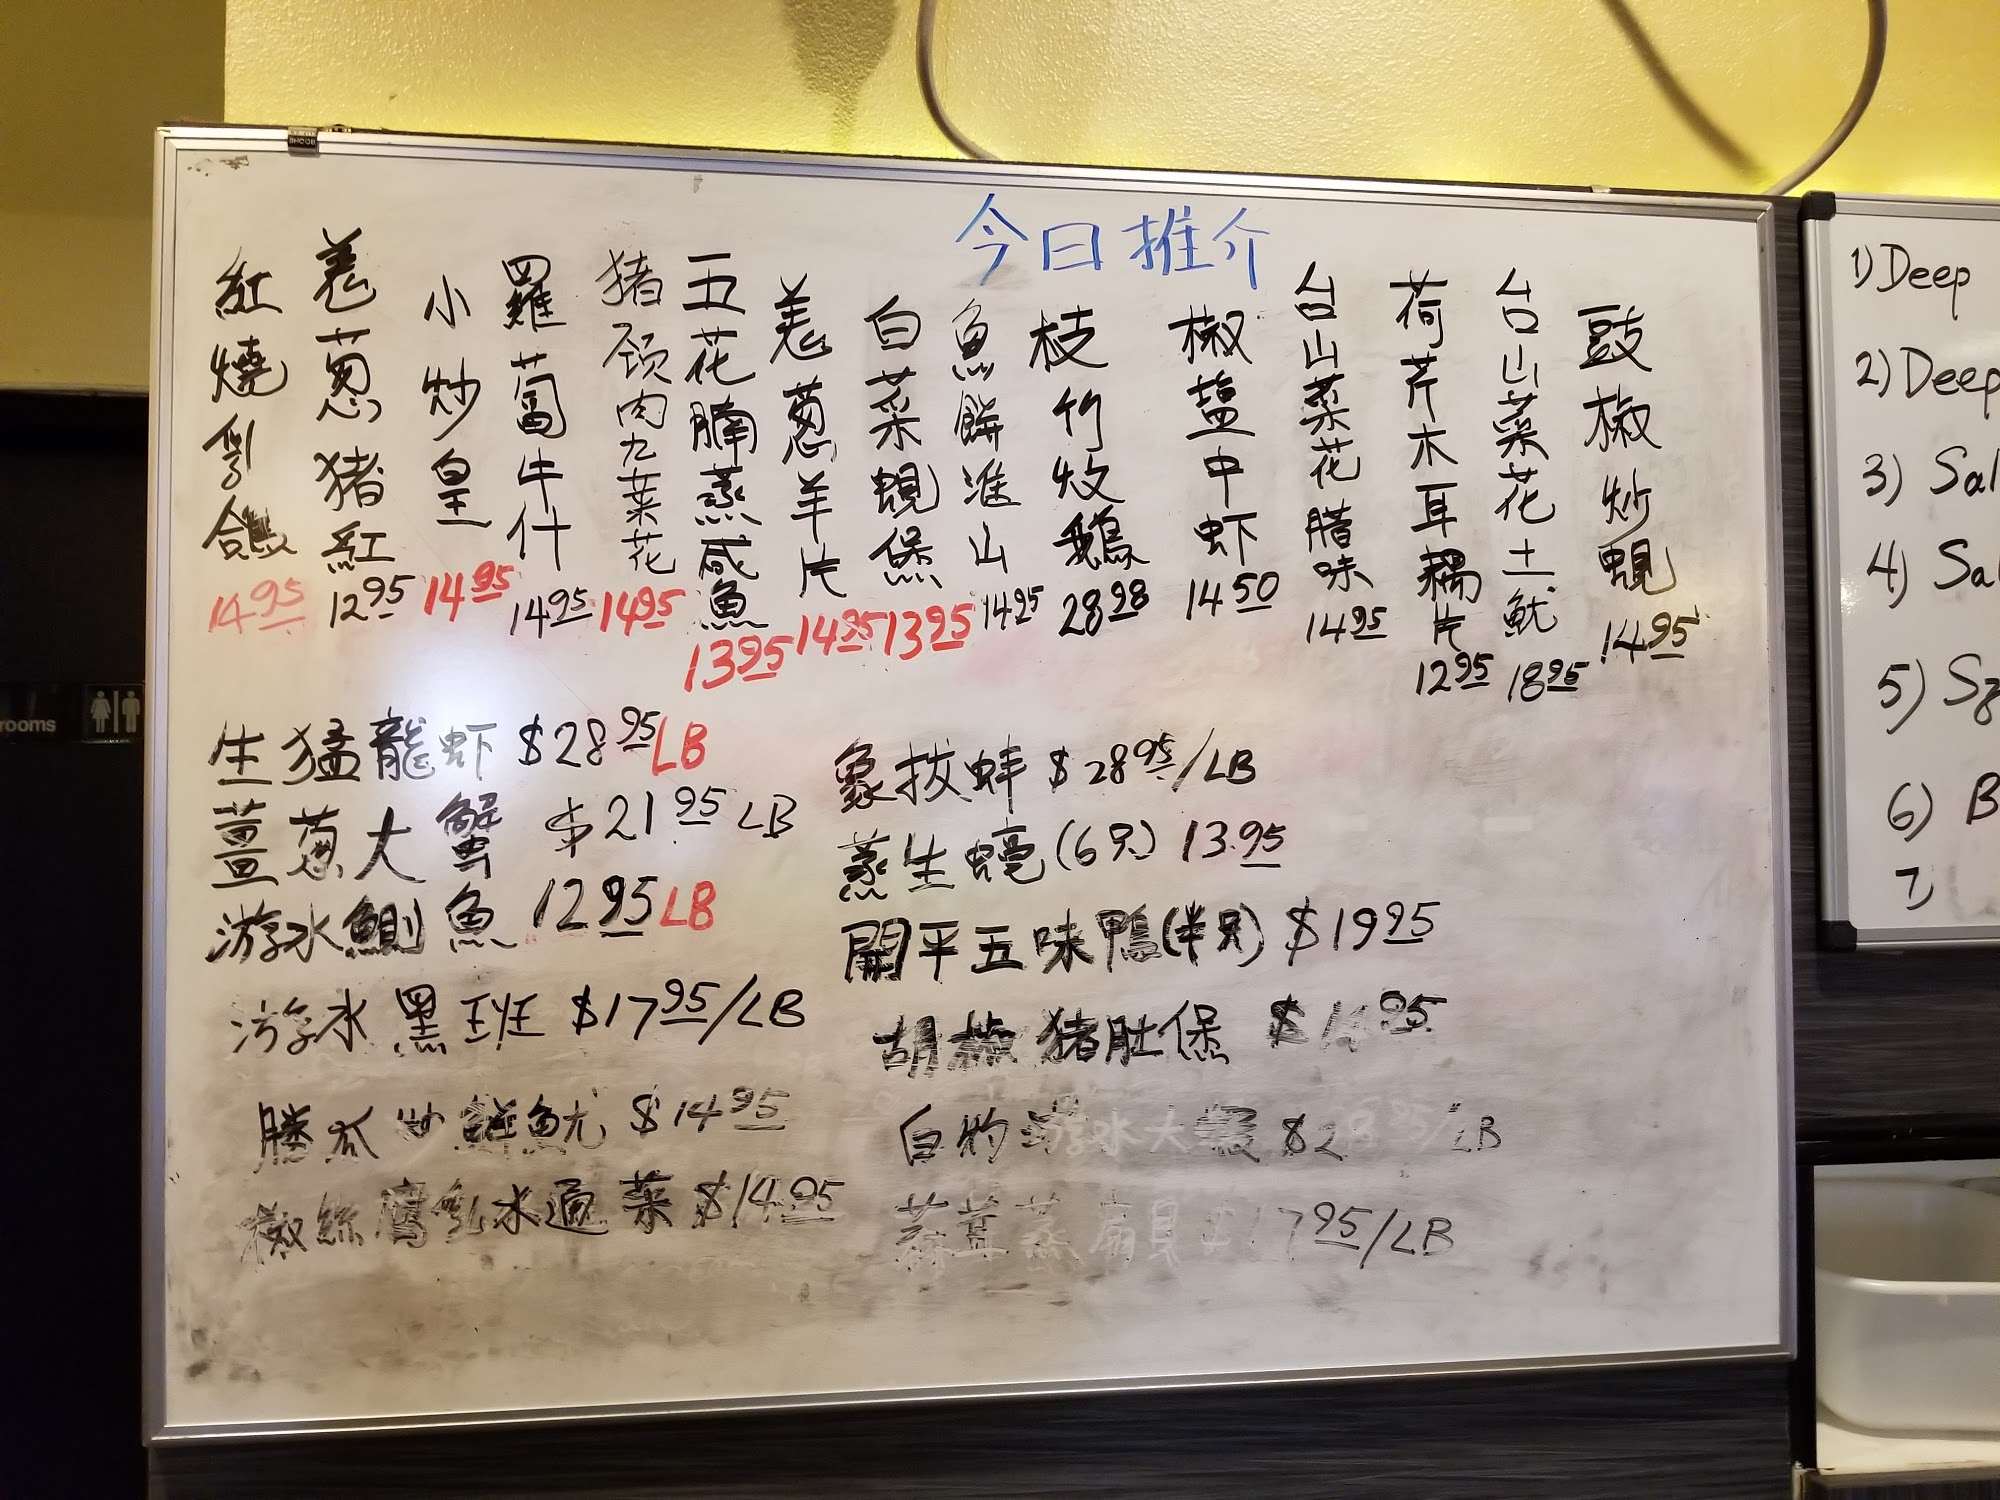 今日推介
豉椒炒蜆 14.95
台山菜花土魷 18.95
荷芹木耳耦片 12.95
台山菜花腊味 14.95
椒盐中虾 14.50
枝竹炆鵝 28.98
魚餅淮山 14.95
白菜蜆煲 13.95
姜葱羊片 14.95
五花腩蒸咸魚 13.95
猪颈肉九菜花 14.95
羅蔔牛什 14.95
小炒皇 14.95
姜葱猪紅 12.95
紅燒乳鴿 14.95
生猛龍虾 $28.95 LB
薑葱大蟹 $21.95 LB
游水鰂魚 12.95 LB
游水黑班 $17.95/LB
勝瓜炒鮮魷 $14.95
椒絲腐乳水通菜 $14.95
象拔蚌 $28.95/LB
蒸生蠔(6只) 13.95
開平五味鴨(半只) $19.95
胡椒猪肚煲 $14.95
白灼游水大 LB
蒜茸蒸扇貝 $17.95/LB
1) Deep
2) Deep
3) Sal
4) Sal
5)
6) B
7)
rooms